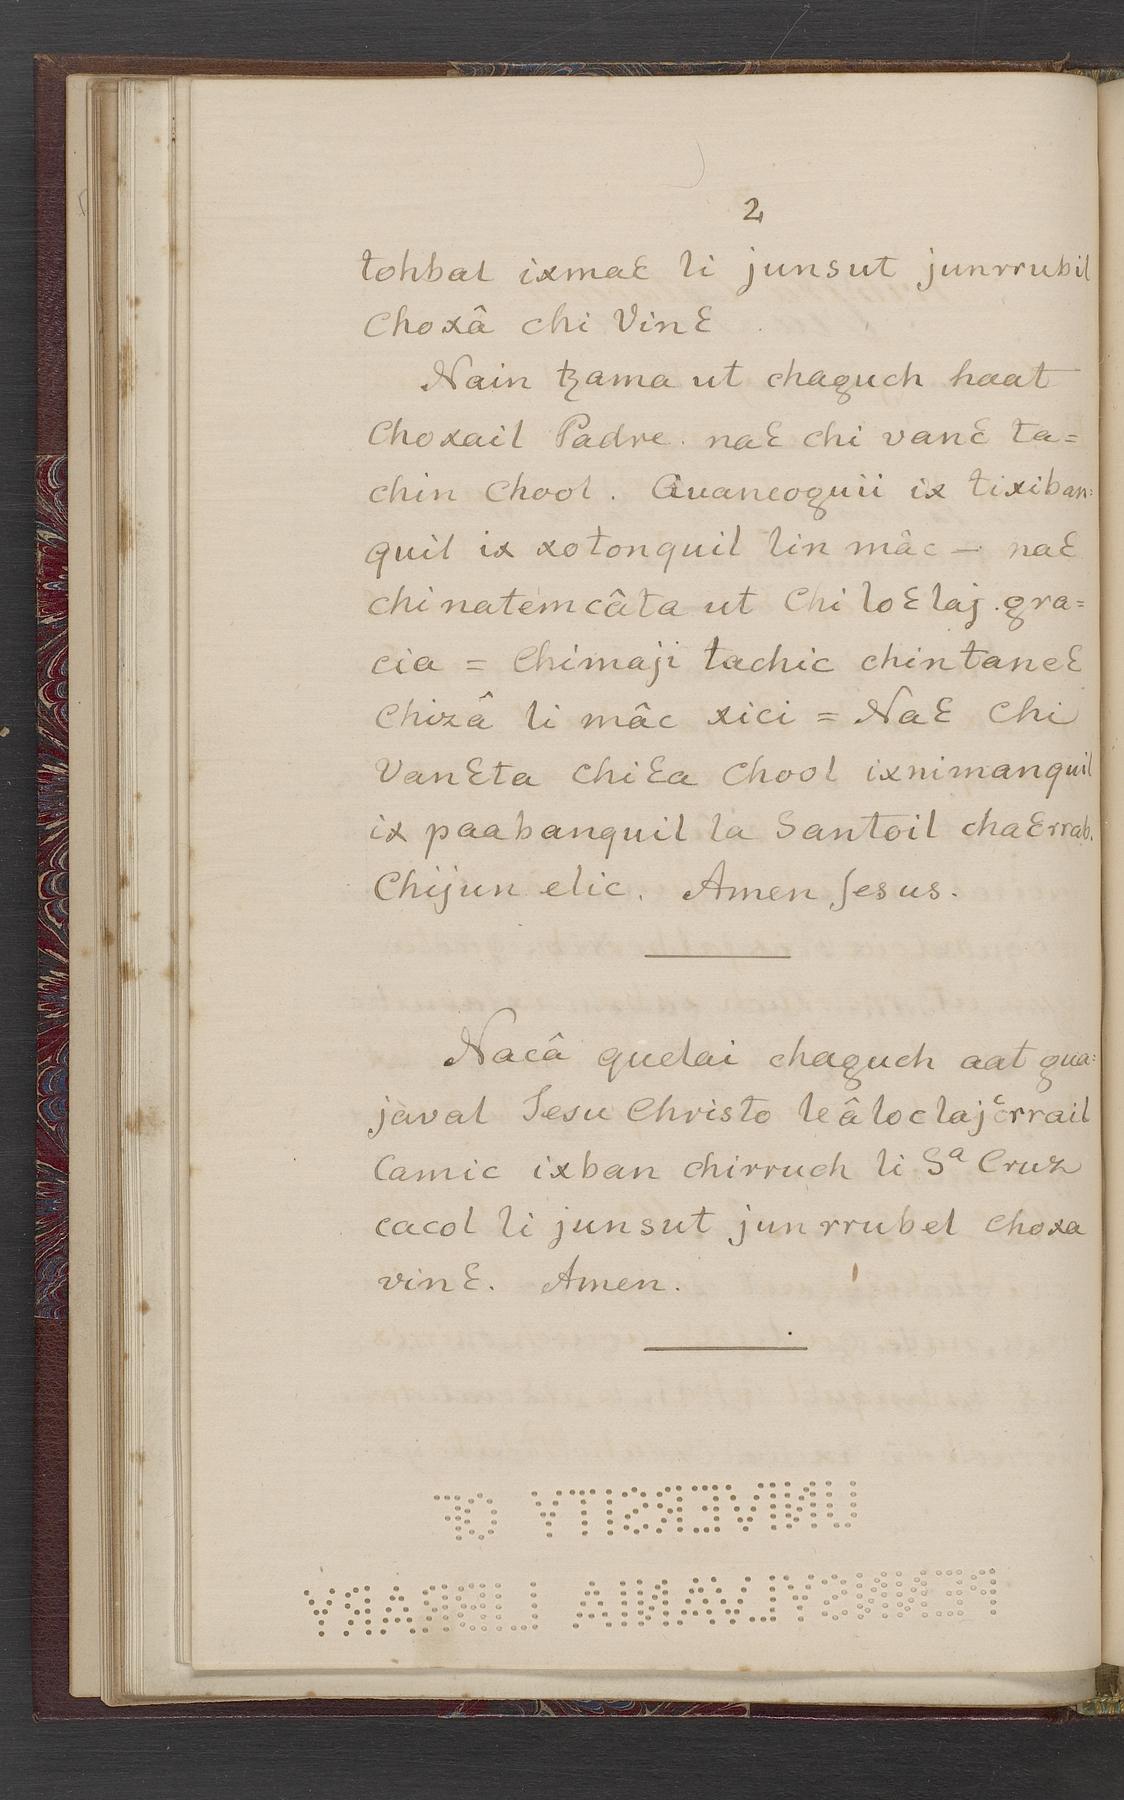 2
tohbal ixmaƐ li junsut junrrubil
Choxâ chi VinƐ
Nain tzama ut chaguch haat
Choxail Padre. naƐ chi vanƐ ta=
chin Chool. Quaneoguii ix tixiban=
quil ix xotonquil lin mâc — naƐ
chinatemcâta ut Chi loƐlaj gra=
cia = Chimaji tachic chintaneƐ
Chizâ li mâc xici = NaƐ Chi
VanƐta ChiƐa Chool ixnimanquil
ix paabanquil la Santoil chaƐrrab.
Chijun elic. Amen Jesus.
Nacâ quelai chaguch aat gua=
javal Jesu Christo leâloclajcrrail
Camic ixban chirruch li Sª Cruz
cacol li junsut junrrubel Choxa
vinƐ. Amen.
UNIVERSITY OF
PENNSYLVANIA LIBRARY